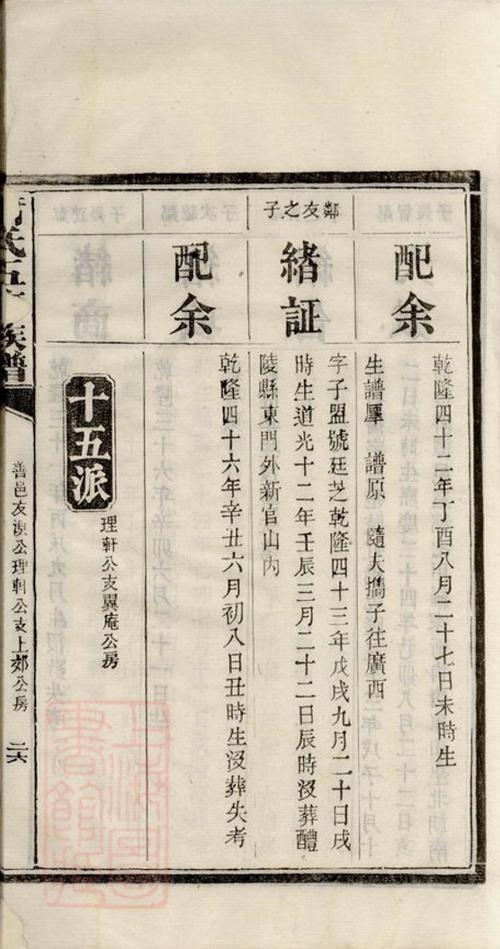 配余
乾隆四十二年丁酉八月二十七日未時生
生譜羣 譜原 隨夫攜子往廣西
鄰友之子
緒証
字子盟號廷芝乾隆四十三年戊戌九月二十日戌
時生道光十二年壬辰三月二十二日辰時沒葬醴
陵縣東門外新官山內
配余
乾隆四十六年辛丑六月初八日丑時生沒葬失考
十五派
理軒公支翼庵公房
族譜
善邑友諒公理軒公支上郊公房
二六